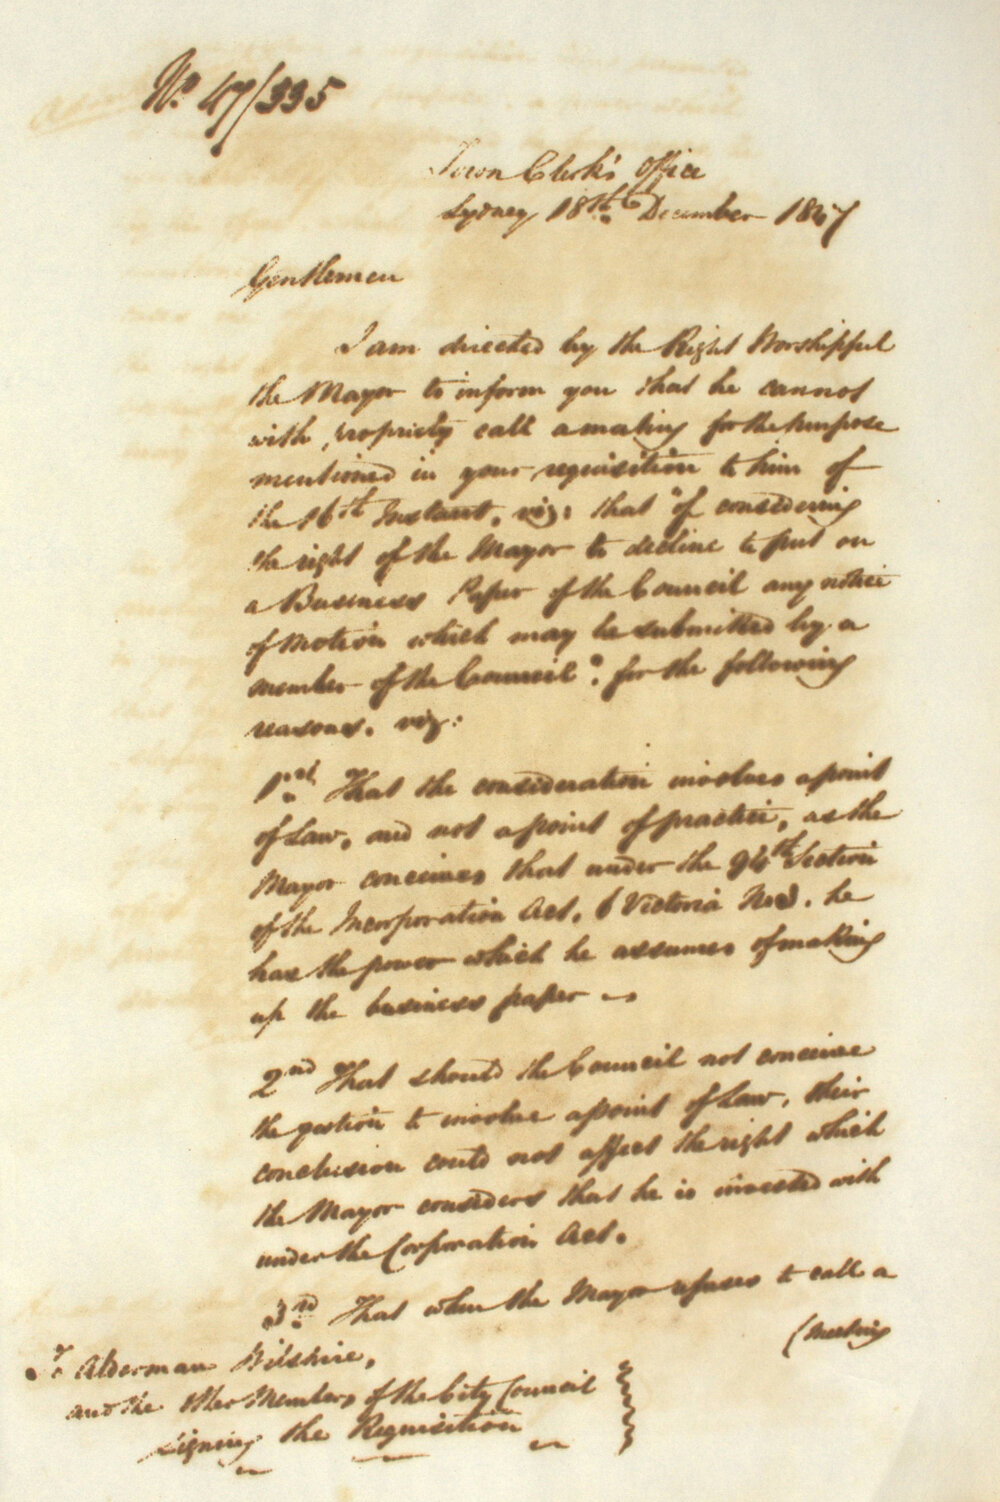 No. 47/335
Town Clerk's Office
Sydney 18th December 1847
Gentlemen
I am directed by the Right Worshipful
the Mayor to inform you that he cannot
with propriety call a meeting for the purpose
mentioned in your requisition to him of
the 16th Instant, viz: that "of considering
the right of the Mayor to decline to put on
a Business Paper of the Council any notice
of Motion which may be submitted by a
member of the Council". for the following
reasons. viz:
1st. That the consideration involves a point
of Law, and not a point of practice, as the
Mayor conceives that under the 94th Section
of the Incorporation Act, 6 Victoria No 3. he
has the power which he assumes of making
up the business paper
2nd That should the Council not conceive
the question to involve a point of Law, their
conclusion could not affect the right which
the Mayor considers that he is invested with
under the Corporation Act.
3rd. That when the Mayor refuses to call a
(Meeting
To Alderman Wilshire,
and the other Members of the City Council
signing the Requisition